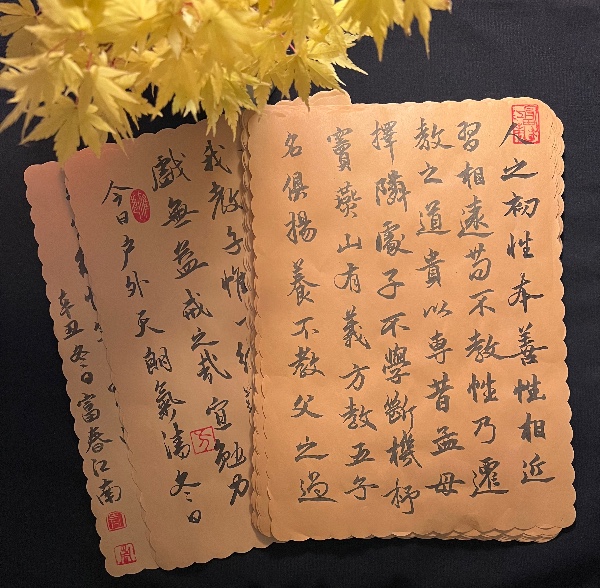 人之初性本善性相近
習相遠苟不教性乃遷
教之道貴以專昔孟母
擇隣處子不學斷機杼
竇燕山有義方教五子
名俱揚養不教父之過
我教子惟一
戲無益戒之哉宜勉力
今日户外天朗氣清冬日
辛丑冬日富春江南